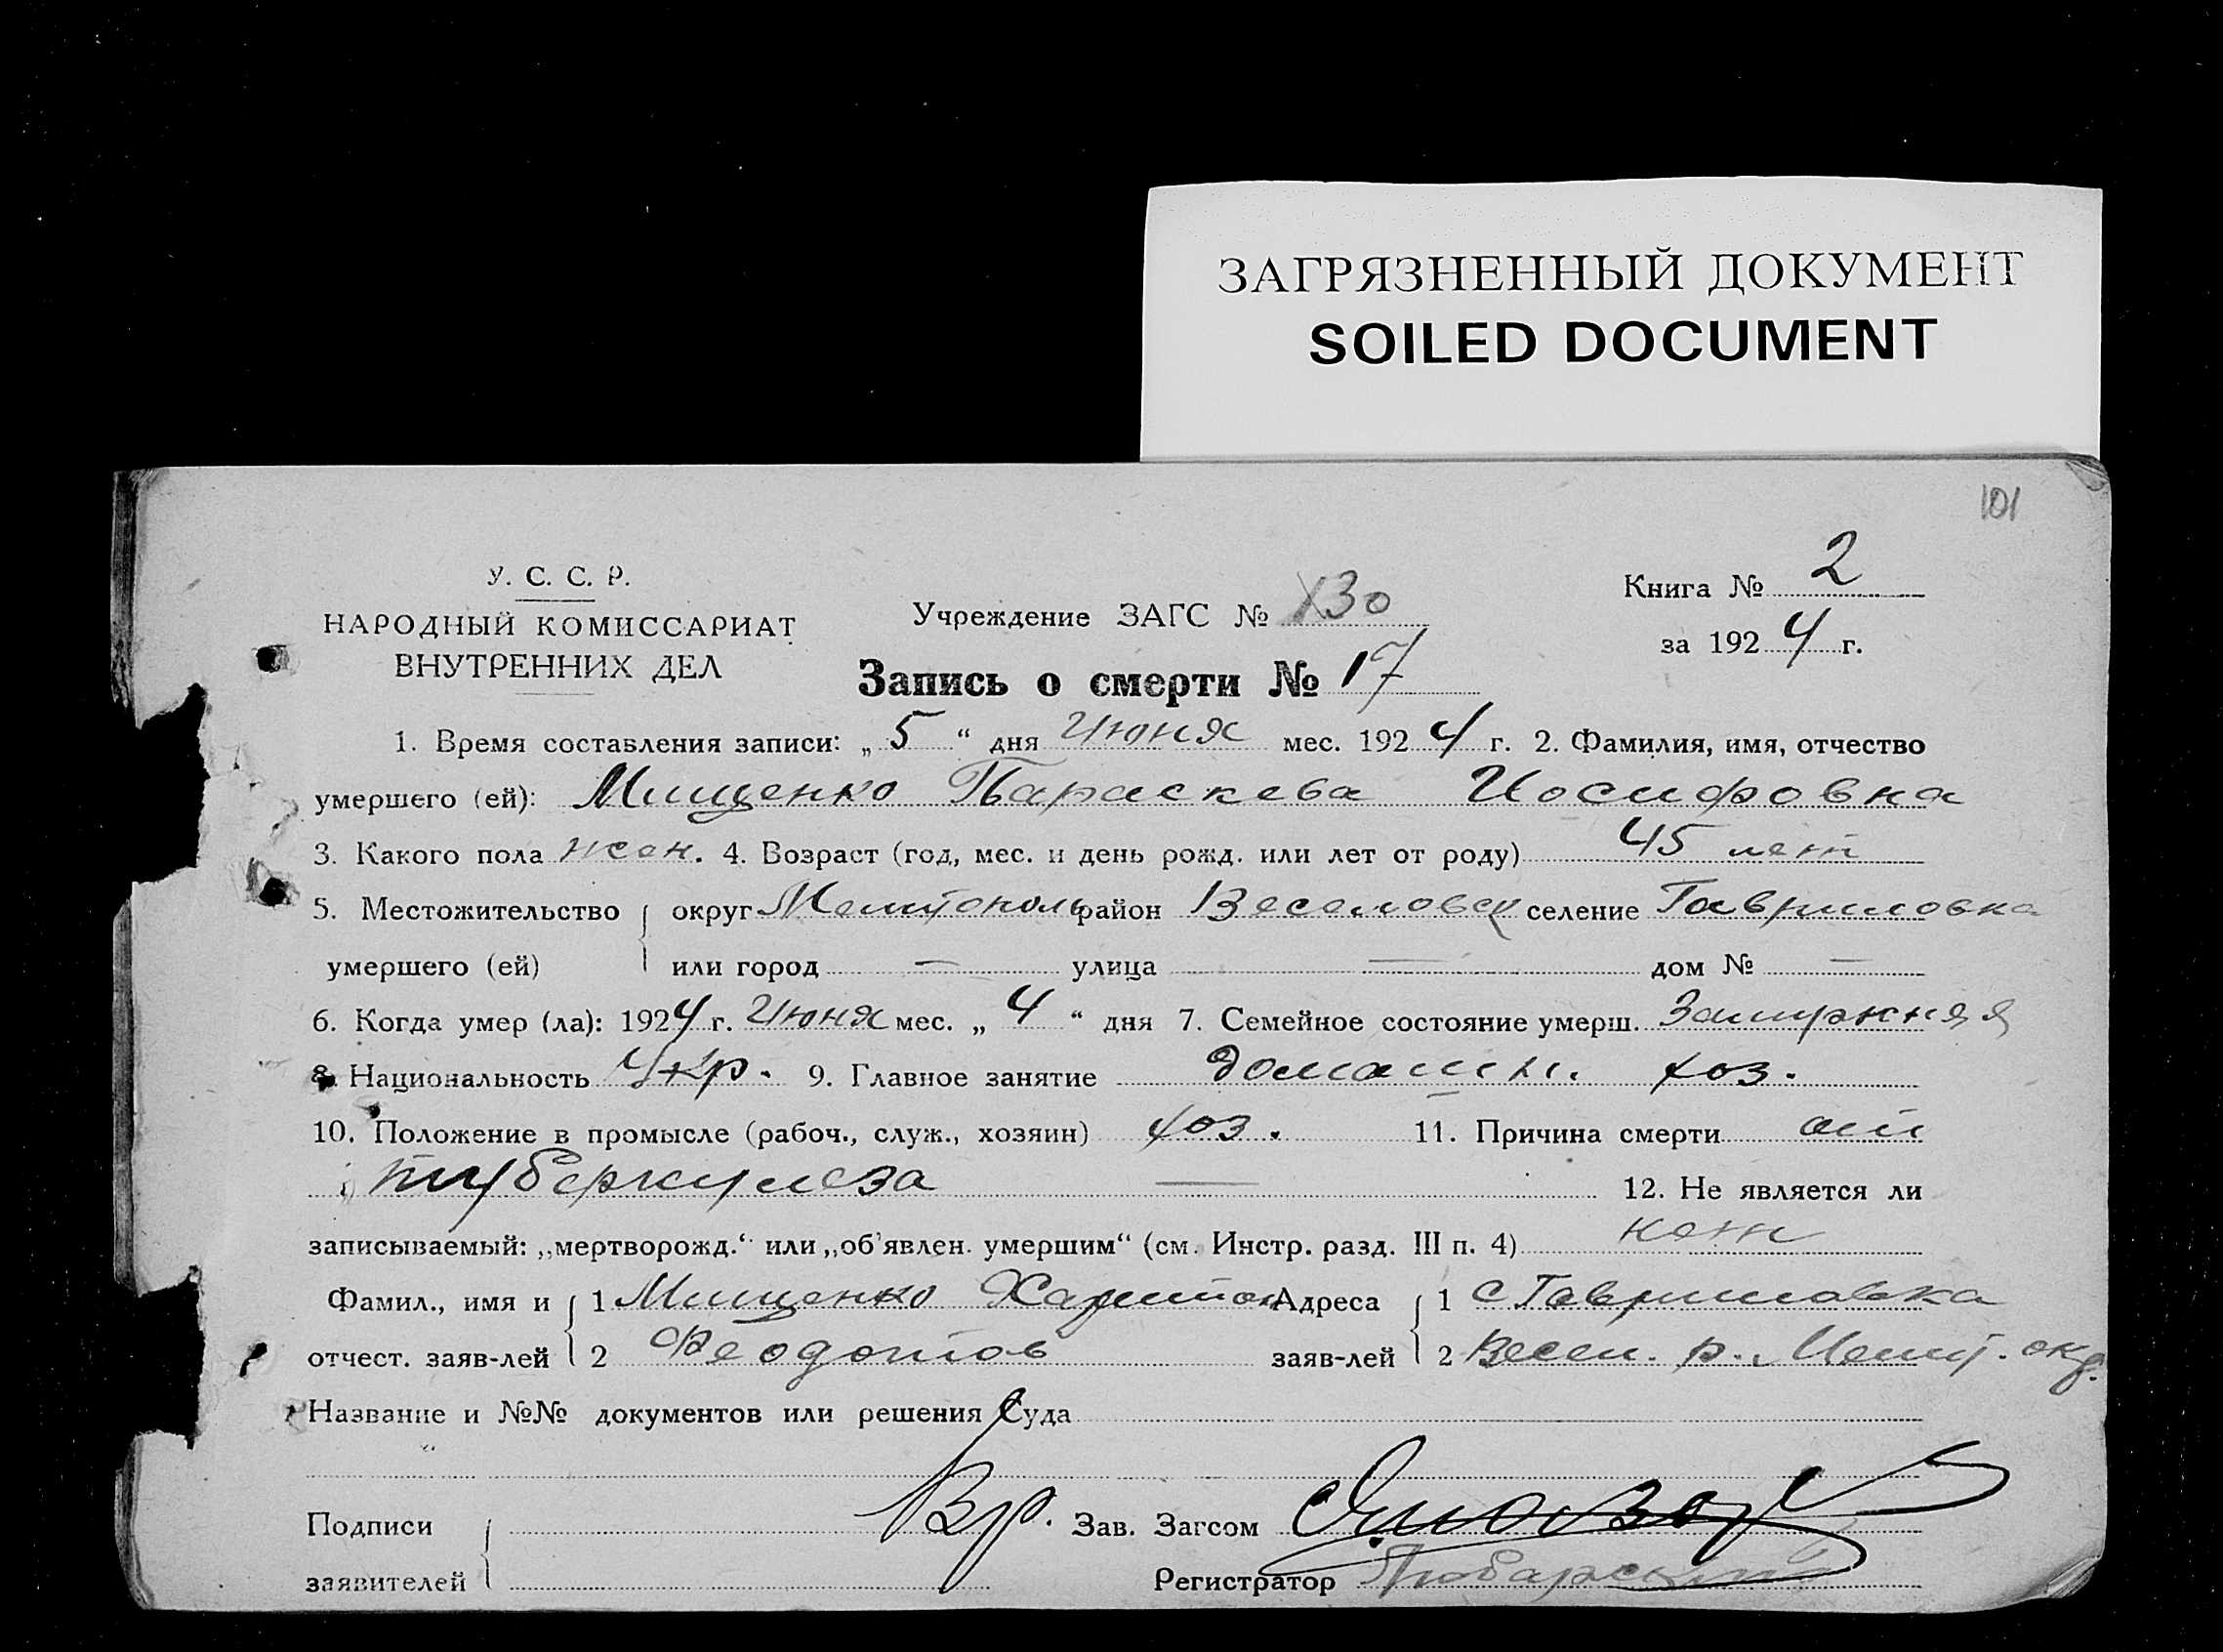 ЗАГРЯЗНЕННЫЙ ДОКУМЕНТ
SOILED DOCUMENT
101
У. С. С. Р.
НАРОДНЫЙ КОМИССАРИАТ
ВНУТРЕННИХ ДЕЛ
Учреждение ЗАГС № X30
Книга № 2
за 1924 г.
Запись о смерти № 17
1. Время составления записи: „ 5 “ дня Июня мес. 1924 г. 2. Фамилия, имя, отчество
умершего (ей): Мищенко Параскева Иосифовна
3. Какого пола жен. 4. Возраст (год, мес. и день рожд. или лет от роду) 45 лет
5. Местожительство округ Мелитополь район Веселовск селение Гавриловка
умершего (ей) или город — улица — дом № —
6. Когда умер (ла): 1924 г. Июня мес. „ 4 “ дня 7. Семейное состояние умерш. Замужняя
8. Национальность Укр. 9. Главное занятие домашн. хоз.
10. Положение в промысле (рабоч., служ., хозяин) хоз. 11. Причина смерти от
туберкулеза — 12. Не является ли
записываемый: „мертворожд.“ или „об'явлен. умершим“ (см. Инстр. разд. III п. 4) нет
Фамил., имя и 1 Мищенко Харитон Адреса 1 с Гавриловка
отчест. заяв-лей 2 Феодотов заяв-лей 2 Весел. р. Мелит. окр.
Название и №№ документов или решения Суда
Подписи Вр. Зав. Загсом
заявителей Регистратор Любарский